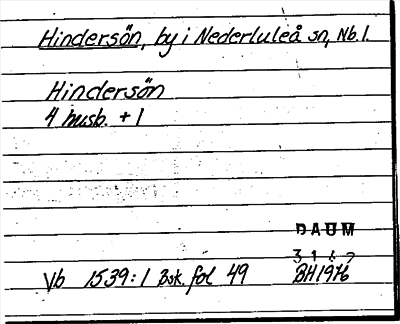 Hindersön, by i Nederluleå sn, Nb. l.
Hindersön
4 husb. + 1
DAUM
Vb 1539:1 Bsk. fol 49 BH1976